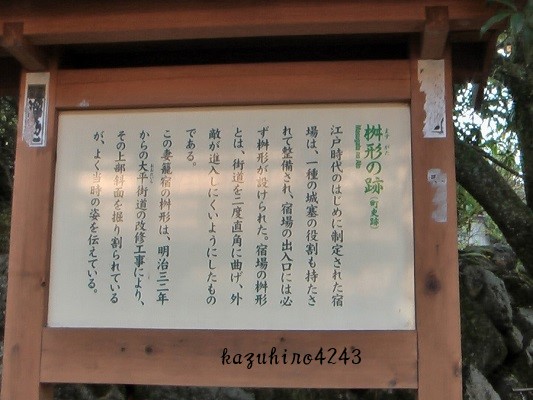 桝形の跡（町史跡）
ます がた
江戸時代のはじめに制定された宿
場は、一種の城塞の役割も持たさ
れて整備され、宿場の出入口には必
ず桝形が設けられた。宿場の桝形
とは、街道を二度直角に曲げ、外
敵が進入しにくいようにしたもの
である。
この妻籠宿の桝形は、明治三二年
からの大平街道の改修工事により、
その上部斜面を掘り割られている
が、よく当時の姿を伝えている。
kazuhiro4243